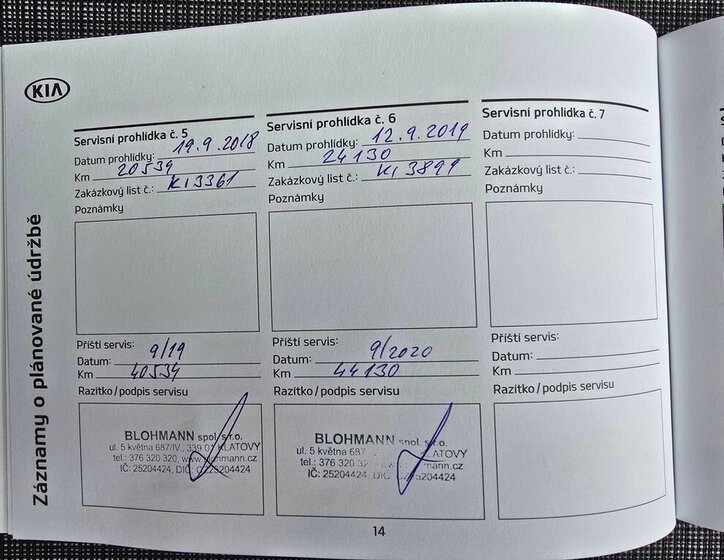 KIA
Záznamy o plánované údržbě
Servisní prohlídka č. 5
Datum prohlídky: 19.9.2018
Km 20539
Zakázkový list č.: K13361
Poznámky
Příští servis:
Datum: 9/19
Km 40539
Razítko/podpis servisu
BLOHMANN spol. s.r.o.
ul. 5 května 687/IV, 339 01 KLATOVY
tel.: 376 320 320,
IČ: 25204424, DIČ: CZ25204424
Servisní prohlídka č. 6
Datum prohlídky: 12.9.2019
Km 24130
Zakázkový list č.: K13899
Poznámky
Příští servis:
Datum: 9/2020
Km 44130
Razítko/podpis servisu
BLOHMANN spol. s.r.o.
ul. 5 května 687 KLATOVY
tel.: 376 320 32
IČ: 25204424, DIČ CZ25204424
Servisní prohlídka č. 7
Datum prohlídky:
Km
Zakázkový list č.:
Poznámky
Příští servis:
Datum:
Km
Razítko/podpis servisu
14